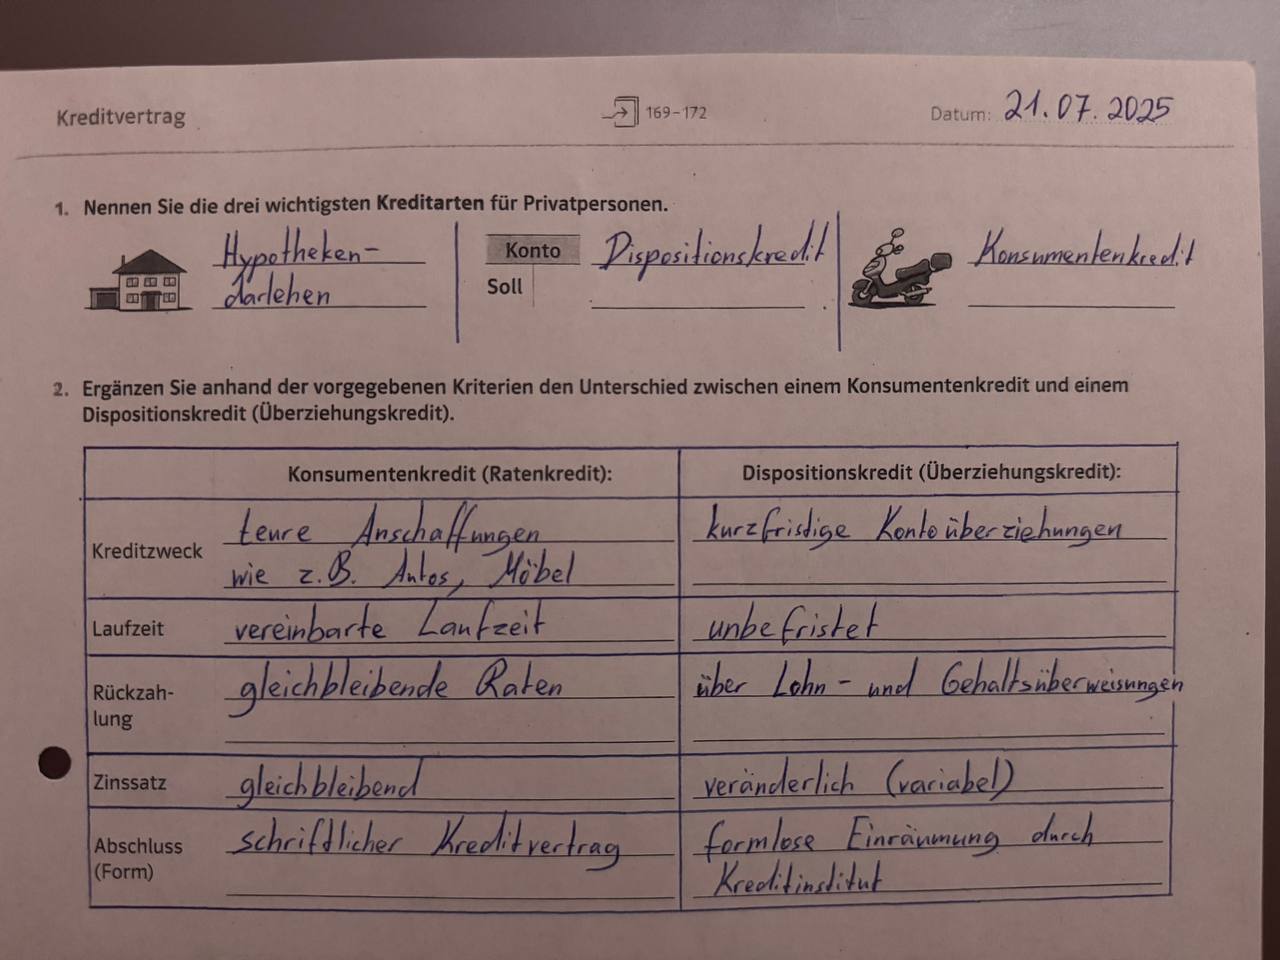 Kreditvertrag 169–172 Datum: 21.07.2025
1. Nennen Sie die drei wichtigsten Kreditarten für Privatpersonen.
Hypotheken-
darlehen
Konto
Soll
Dispositionskredit
Konsumentenkredit
2. Ergänzen Sie anhand der vorgegebenen Kriterien den Unterschied zwischen einem Konsumentenkredit und einem
Dispositionskredit (Überziehungskredit).
Konsumentenkredit (Ratenkredit): Dispositionskredit (Überziehungskredit):
Kreditzweck
teure Anschaffungen
wie z.B. Autos, Möbel
kurzfristige Kontoüberziehungen
Laufzeit vereinbarte Laufzeit unbefristet
Rückzah-
lung
gleichbleibende Raten
über Lohn- und Gehaltsüberweisungen
Zinssatz gleichbleibend veränderlich (variabel)
Abschluss
(Form)
schriftlicher Kreditvertrag
formlose Einräumung durch
Kreditinstitut